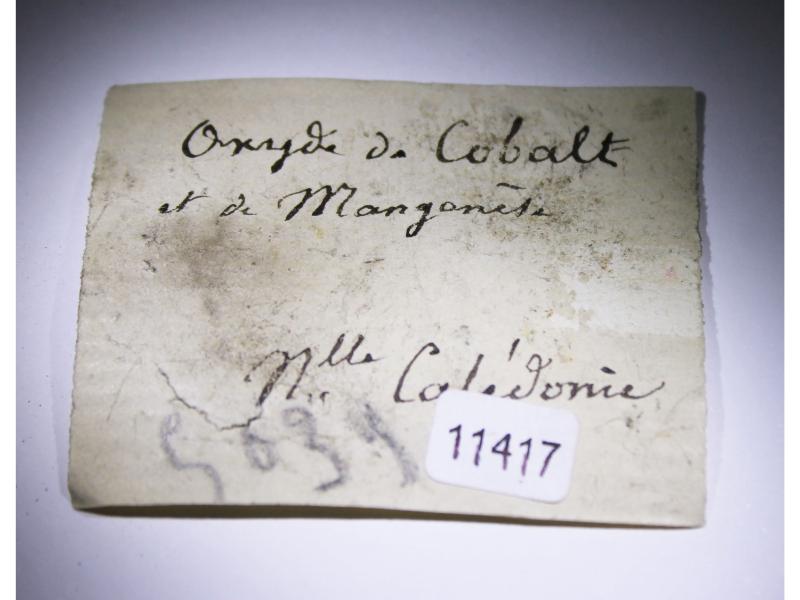 Oxyde de Cobalt
et de Manganèse
Nlle Calédonie
11417